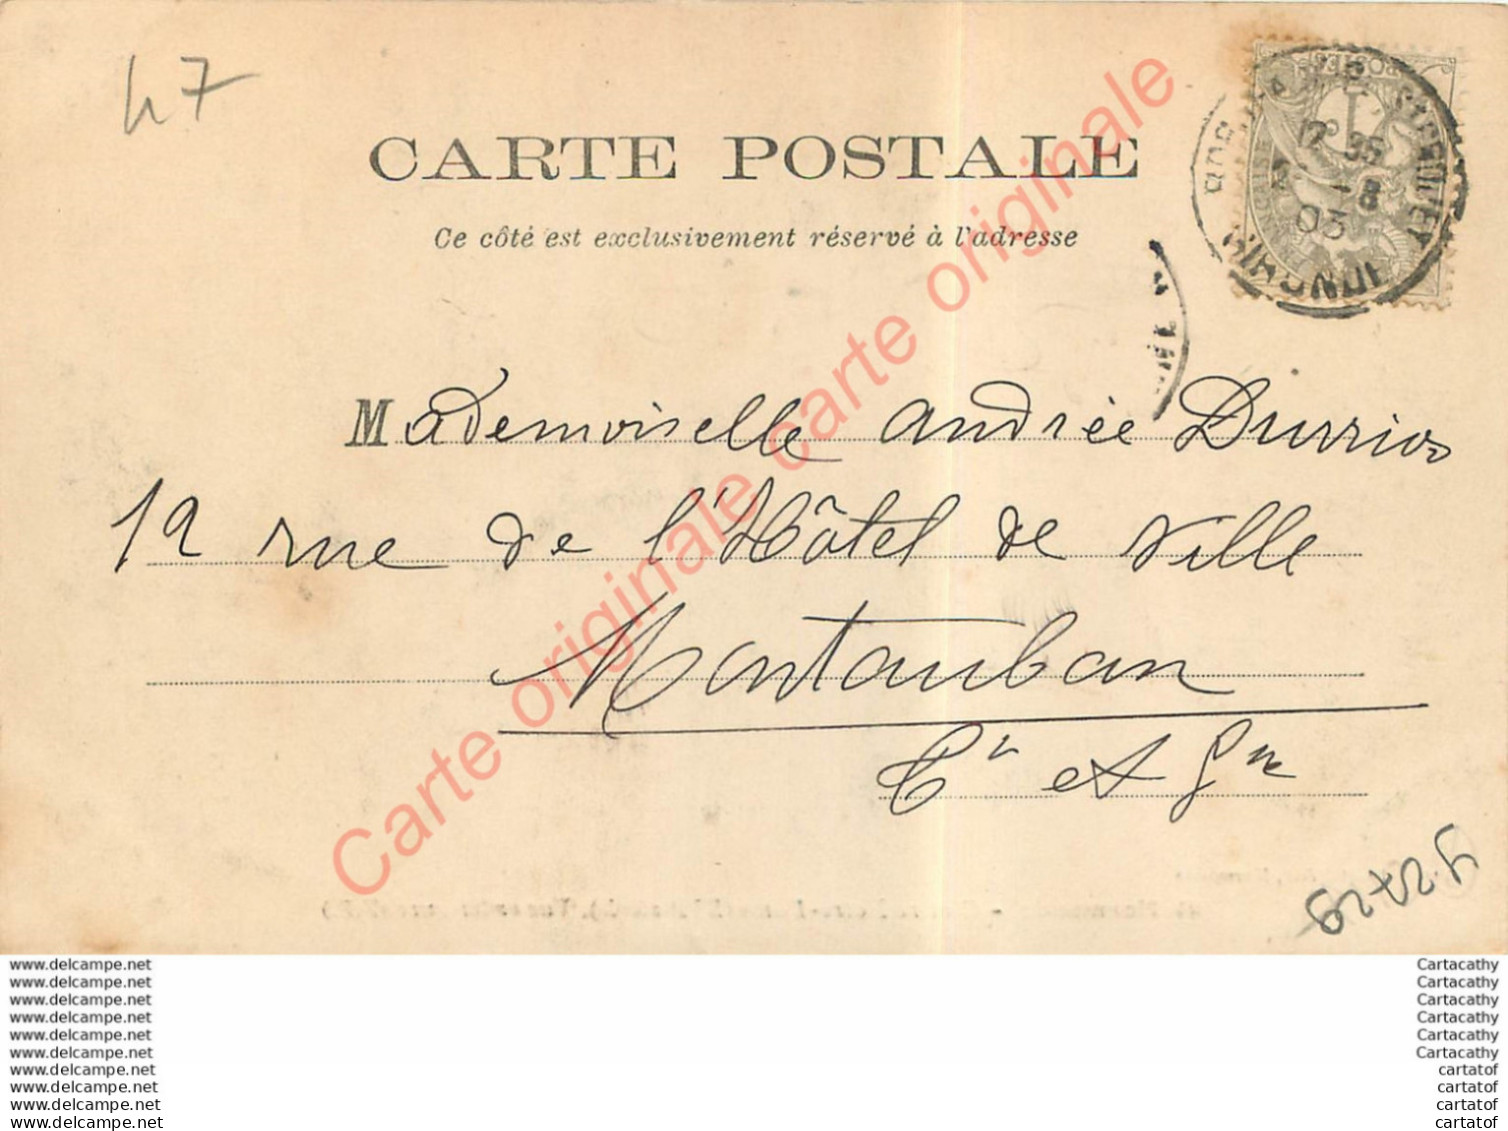 47
CARTE POSTALE
Ce côté est exclusivement réservé à l'adresse
Mademoiselle Andrée Durrios
12 rue de l'Hôtel de Ville
Montauban
Tn et Gne
Carte originale carte originale
GIRONDE
17 35
8
03
www.delcampe.net
www.delcampe.net
www.delcampe.net
www.delcampe.net
www.delcampe.net
www.delcampe.net
www.delcampe.net
www.delcampe.net
www.delcampe.net
www.delcampe.net
Cartacathy
Cartacathy
Cartacathy
Cartacathy
Cartacathy
Cartacathy
cartatof
cartatof
cartatof
cartatof